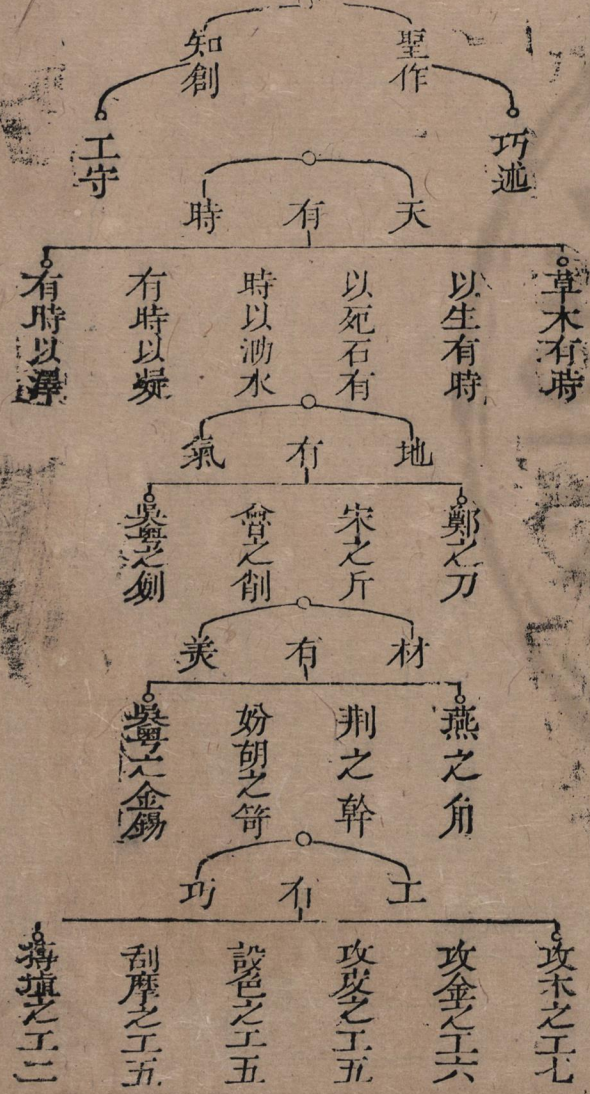 聖作
知創
巧述
工守
天有時
草木有時
以生有時
以死石有
時以泐水
有時以凝
有時以澤
地有氣
鄭之刀
宋之斤
魯之削
吳粤之劍
材有美
燕之角
荆之幹
妢胡之笴
吳粤之金錫
工有巧
攻木之工七
攻金之工六
攻皮之工五
設色之工五
刮摩之工五
摶埴之工二